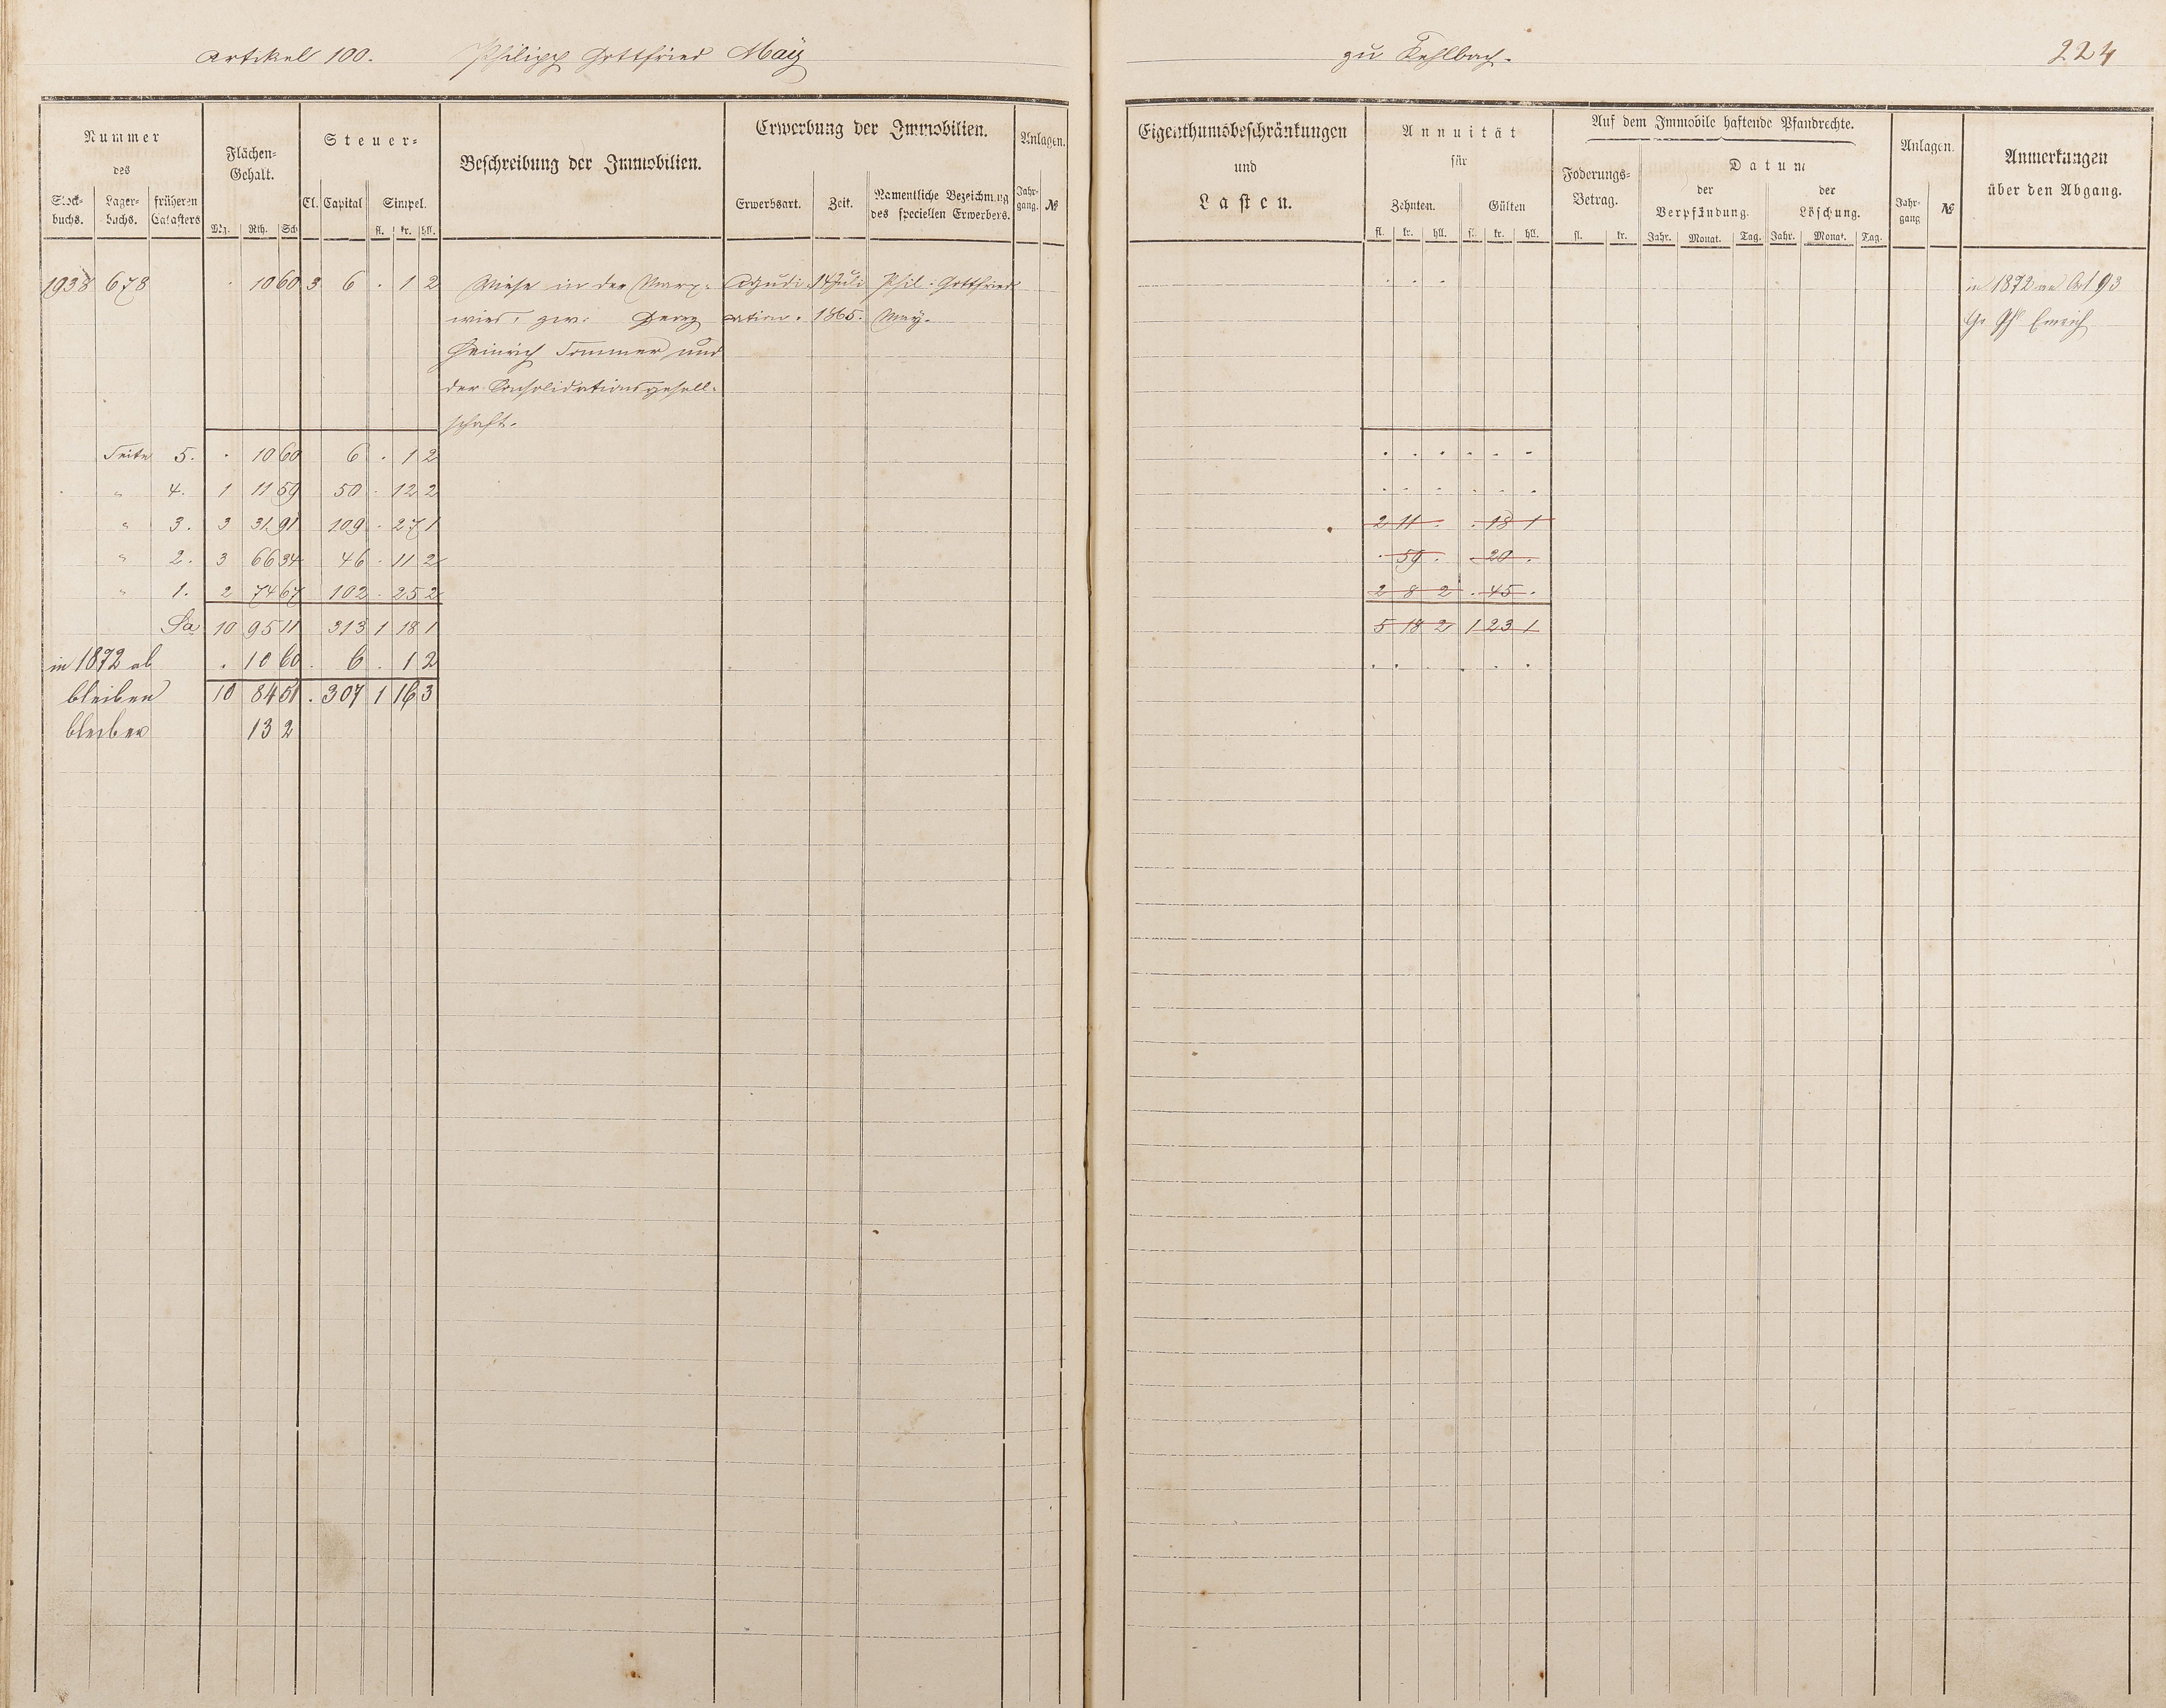 Artikel 100. Philipp Gottfried Maÿ
zu Kehlbach.
224
Nummer
des
Stock-
buchs.
Lager-
buchs.
früheren
Catasters
Flächen-
Gehalt.
Mg. Rth. Sch
Steuer-
Cl. Capital Simpel.
fl. kr. hll.
Beschreibung der Immobilien.
Erwerbung der Immobilien.
Erwerbsart. Zeit. Namentliche Bezeichnung
des speciellen Erwerbers.
Anlagen.
Jahr-
gang. №
Eigenthumsbeschränkungen
und
Lasten.
Annuität
für
Zehnten. Gülten
fl. kr. hll. fl. kr. hll.
Auf dem Immobile haftende Pfandrechte.
Foderungs-
Betrag.
fl. kr.
Datum
der
Verpfändung.
der
Löschung.
Jahr. Monat. Tag. Jahr. Monat. Tag.
Anlagen.
Jahr-
gang №
Anmerkungen
über den Abgang.
1938 678 . 10 60 3 6 . 1 2 Wiese in der
Adjudi- 14 Juli Phil. Gottfried . . . in 1872 an Art 93
wies, zw. Georg cation. 1865. May.
Heinrich Sommer und
der Consolidationsgesell-
schaft.
Seite 5. . 10 60 6 . 1 2 . . . . . .
" 4. 1 11 59 50 . 12 2 . . . . . .
" 3. 3 31 91 109 . 27 1 2 11 . . 18 1
" 2. 3 66 34 46 . 11 2 . 59 . . 20 .
" 1. 2 74 67 102 . 25 2 2 8 2 . 45 .
Sa 10 95 11 313 1 18 1 5 18 2 1 23 1
in 1872 ab . 10 60 . 6 . 1 2 . . . . .
bleiben 10 84 51 . 307 1 16 3
bleiben 13 2